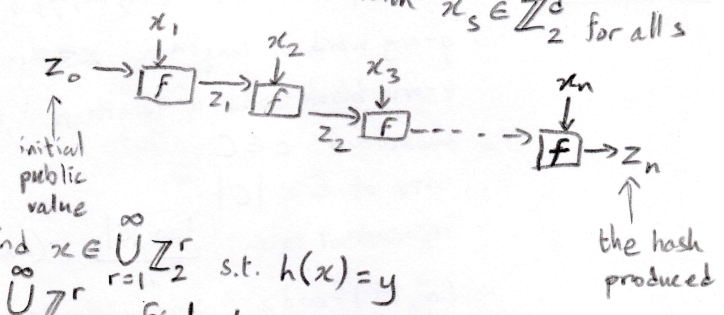 x_s ∈ ℤ_2^d for all s
x_1
x_2
x_3
x_n
z_0 → f → z_1 → f → z_2 → f - - - - → f → z_n
initial
public
value
the hash
produced
nd x ∈ ⋃_{r=1}^∞ ℤ_2^r s.t. h(x) = y
∞
⋃ ℤ^r